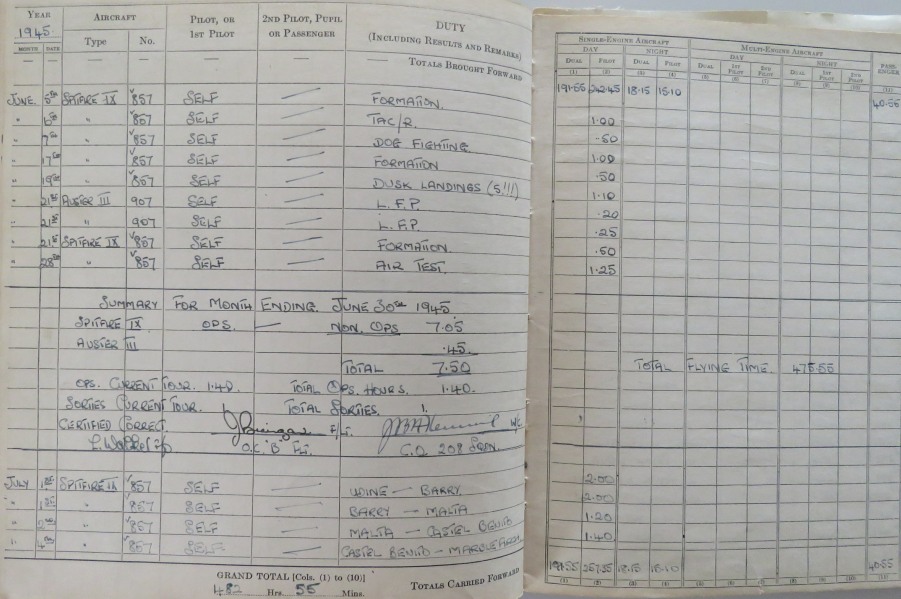 YEAR AIRCRAFT PILOT, OR 2ND PILOT, PUPIL DUTY
1945 1ST PILOT OR PASSENGER (INCLUDING RESULTS AND REMARKS)
MONTH DATE Type No.
— — — — — TOTALS BROUGHT FORWARD
JUNE 5th SPITFIRE IX V857 SELF — FORMATION.
" 6th " V857 SELF — TAC/R.
" 7th " V857 SELF — DOG FIGHTING
" 17th " V857 SELF — FORMATION
" 19th " V857 SELF — DUSK LANDINGS (5!!!)
" 21st AUSTER III 907 SELF — L.F.P.
" 21st " 907 SELF — L.F.P.
" 21st SPITFIRE IX V857 SELF — FORMATION.
" 28th " V857 SELF — AIR TEST.
SUMMARY FOR MONTH ENDING. JUNE 30th 1945.
SPITFIRE IX OPS. — NON. OPS 7.05
AUSTER III .45.
TOTAL 7.50
OPS. CURRENT TOUR. 1.40. TOTAL OPS. HOURS. 1.40.
SORTIES CURRENT TOUR. TOTAL SORTIES. 1.
CERTIFIED CORRECT. F/Lt. W/C
O.C. "B" Flt. C.O. 208 SQDN.
JULY 1st SPITFIRE IX V857 SELF — UDINE — BARRY.
" 1st " V857 SELF — BARRY — MALTA
" 2nd " V857 SELF — MALTA — CASTEL BENITO
" 4th " V857 SELF — CASTEL BENITO — MARBLE ARCH
GRAND TOTAL [Cols. (1) to (10)]
482 Hrs. 55 Mins. TOTALS CARRIED FORWARD
SINGLE-ENGINE AIRCRAFT MULTI-ENGINE AIRCRAFT PASSENGER
DAY NIGHT DAY NIGHT
DUAL PILOT DUAL PILOT DUAL 1ST PILOT 2ND PILOT DUAL 1ST PILOT 2ND PILOT
(1) (2) (3) (4) (5) (6) (7) (8) (9) (10) (11)
191.55 242.45 18.15 15.10 40.55
1.00
.50
1.00
.50
1.10
.20
.25
.50
1.25
TOTAL FLYING TIME. 475.55
2.00
2.00
1.20
1.40
191.55 257.35 18.15 15.10 40.55
(1) (2) (3) (4) (5) (6) (7) (8) (9) (10) (11)